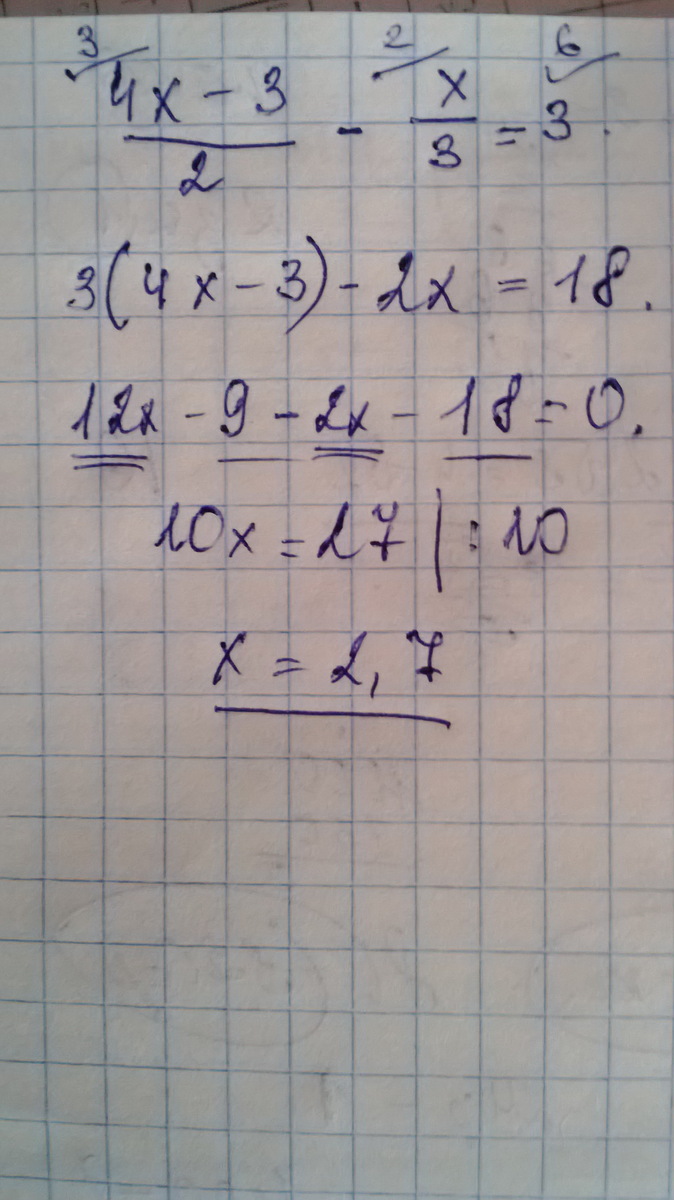 3/ 2/ 6/
(4x - 3)/2 - x/3 = 3.
3(4x - 3) - 2x = 18.
12x - 9 - 2x - 18 = 0.
10x = 27 | : 10
x = 2,7